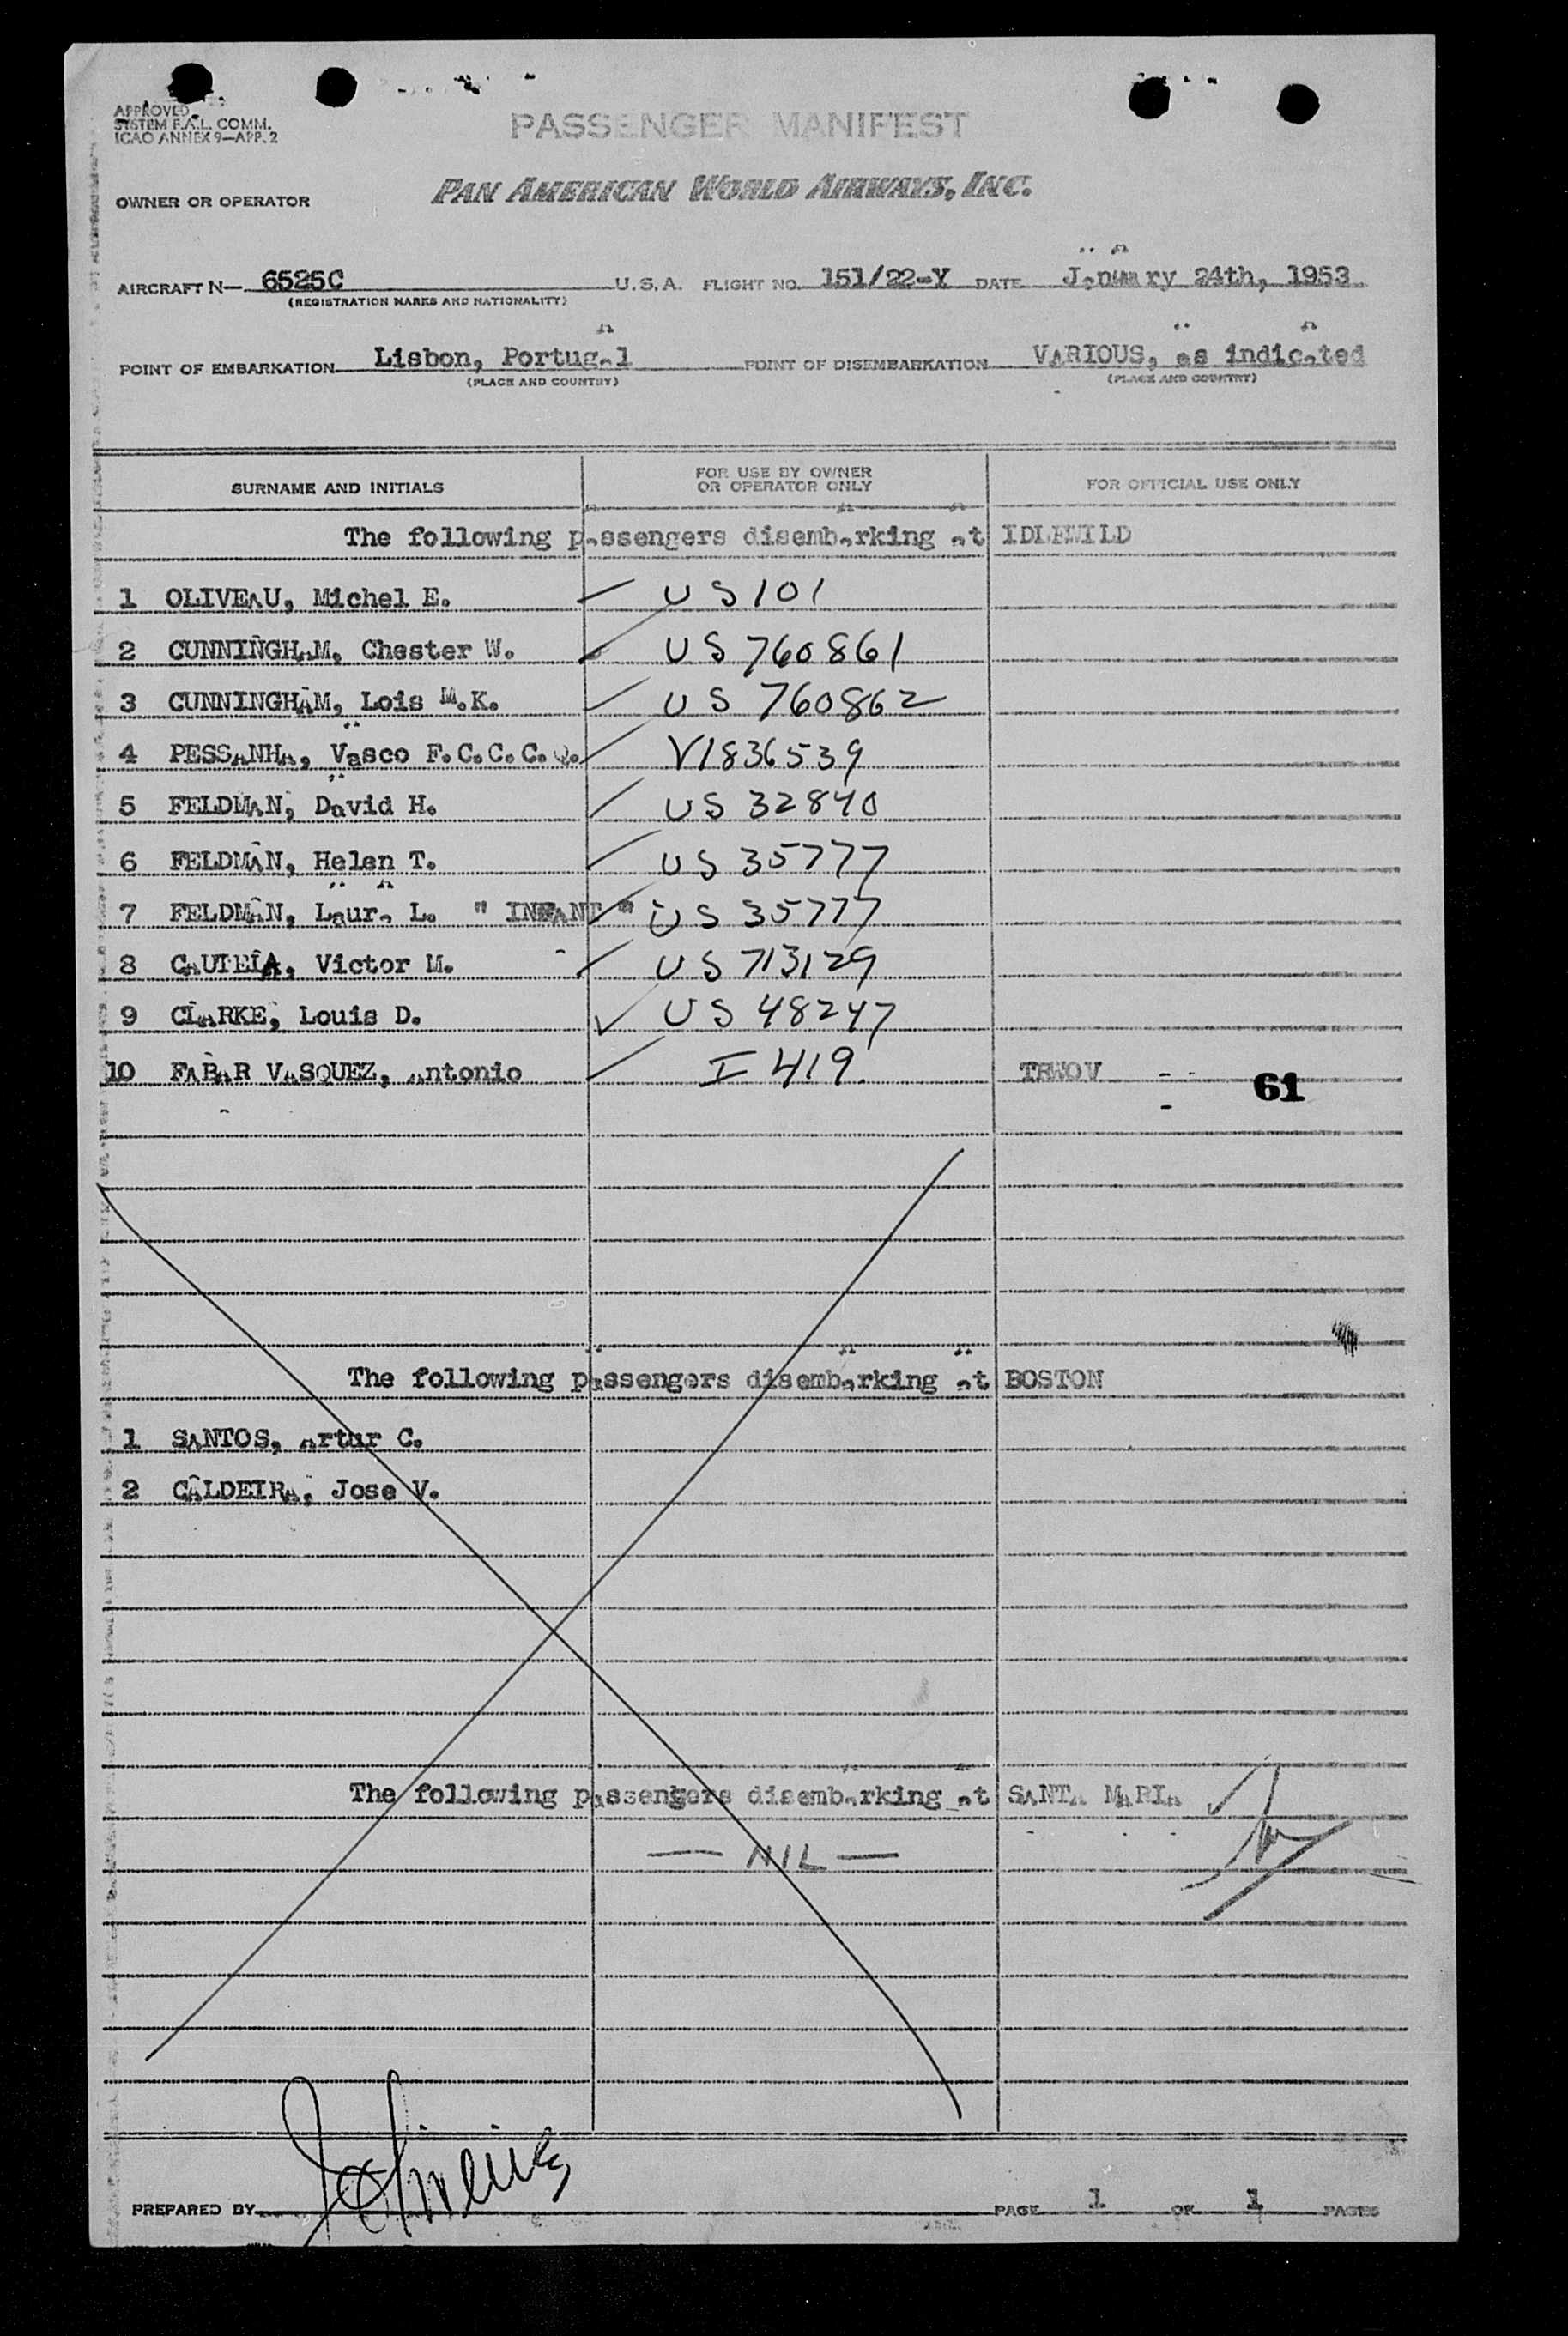 APPROVED
SYSTEM F.A.L. COMM.
ICAO ANNEX 9—APP. 2
PASSENGER MANIFEST
OWNER OR OPERATOR PAN AMERICAN WORLD AIRWAYS, INC.
AIRCRAFT N— 6525C U.S.A. FLIGHT NO. 151/22-Y DATE January 24th, 1953.
(REGISTRATION MARKS AND NATIONALITY)
POINT OF EMBARKATION Lisbon, Portugal POINT OF DISEMBARKATION VARIOUS, as indicated
(PLACE AND COUNTRY) (PLACE AND COUNTRY)
SURNAME AND INITIALS FOR USE BY OWNER OR OPERATOR ONLY FOR OFFICIAL USE ONLY
The following passengers disembarking at IDLEWILD
1 OLIVEAU, Michel E. US 101
2 CUNNINGHAM, Chester W. US 760861
3 CUNNINGHAM, Lois M.K. US 760862
4 PESSANHA, Vasco F.C.C.C. V1836539
5 FELDMAN, David H. US 32840
6 FELDMAN, Helen T. US 35777
7 FELDMAN, Laura L. " INFANT " US 35777
8 CAUTELA, Victor M. US 713129
9 CLARKE, Louis D. US 48247
10 FABAR VASQUEZ, Antonio I 419 TRWOV 61
The following passengers disembarking at BOSTON
1 SANTOS, Artur C.
2 CALDEIRA, Jose V.
The following passengers disembarking at SANTA MARIA
— NIL —
PREPARED BY PAGE 1 OF 1 PAGES